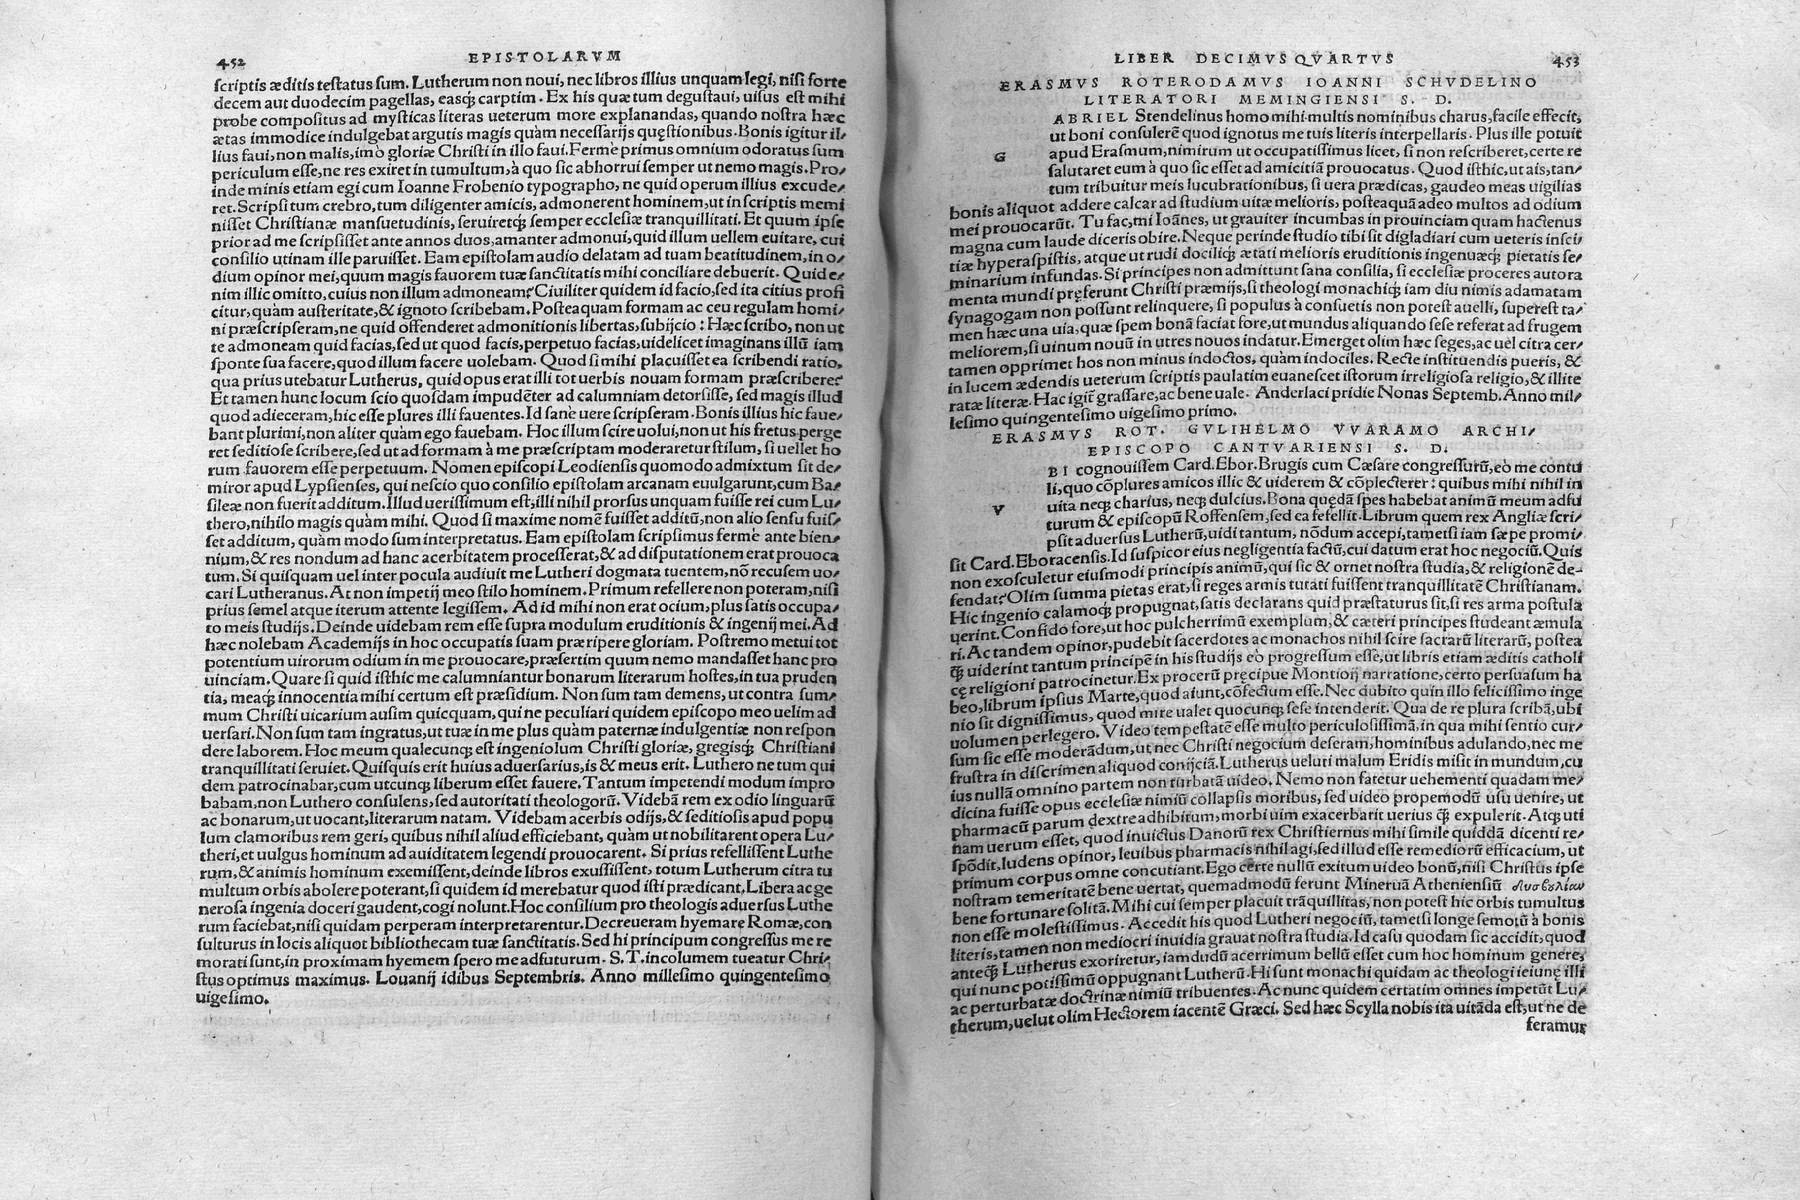 452 EPISTOLARVM
scriptis æditis testatus sum. Lutherum non noui, nec libros illius unquam legi, nisi forte
decem aut duodecim pagellas, easq́; carptim. Ex his quæ tum degustaui, uisus est mihi
probe compositus ad mysticas literas ueterum more explanandas, quando nostra hæc
ætas immodice indulgebat argutis magis quàm necessarijs quęstionibus. Bonis igitur il⸗
lius faui, non malis, imò gloriæ Christi in illo faui. Ferme primus omnium odoratus sum
periculum esse, ne res exiret in tumultum, à quo sic abhorrui semper ut nemo magis. Pro⸗
inde minis etiam egi cum Ioanne Frobenio typographo, ne quid operum illius excude⸗
ret. Scripsi tum crebro, tum diligenter amicis, admonerent hominem, ut in scriptis memi
nisset Christianæ mansuetudinis, seruiretq́; semper ecclesiæ tranquillitati. Et quum ipse
prior ad me scripsisset ante annos duos, amanter admonui, quid illum uellem euitare, cui
consilio utinam ille paruisset. Eam epistolam audio delatam ad tuam beatitudinem, in o⸗
dium opinor mei, quum magis fauorem tuæ sanctitatis mihi conciliare debuerit. Quid e⸗
nim illic omitto, cuius non illum admoneam? Ciuiliter quidem id facio, sed ita citius profi
citur, quàm austeritate, & ignoto scribebam. Posteaquam formam ac ceu regulam homi⸗
ni præscripseram, ne quid offenderet admonitionis libertas, subijcio: Hæc scribo, non ut
te admoneam quid facias, sed ut quod facis, perpetuo facias, uidelicet imaginans illũ iam
sponte sua facere, quod illum facere uolebam. Quod si mihi placuisset ea scribendi ratio,
qua prius utebatur Lutherus, quid opus erat illi tot uerbis nouam formam præscribere?
Et tamen hunc locum scio quosdam impudẽter ad calumniam detorsisse, sed magis illud
quod adieceram, hic esse plures illi fauentes. Id sane uere scripseram. Bonis illius hic faue⸗
bant plurimi, non aliter quàm ego fauebam. Hoc illum scire uolui, non ut his fretus perge
ret seditiose scribere, sed ut ad formam à me præscriptam moderaretur stilum, si uellet ho
rum fauorem esse perpetuum. Nomen episcopi Leodiensis quomodo admixtum sit de⸗
miror apud Lypsienses, qui nescio quo consilio epistolam arcanam euulgarunt, cum Ba⸗
sileæ non fuerit additum. Illud uerissimum est, illi nihil prorsus unquam fuisse rei cum Lu⸗
thero, nihilo magis quàm mihi. Quod si maxime nomẽ fuisset additũ, non alio sensu fuis⸗
set additum, quàm modo sum interpretatus. Eam epistolam scripsimus ferme ante bien⸗
nium, & res nondum ad hanc acerbitatem processerat, & ad disputationem erat prouoca
tum. Si quisquam uel inter pocula audiuit me Lutheri dogmata tuentem, nõ recusem uo⸗
cari Lutheranus. At non impetij meo stilo hominem. Primum refellere non poteram, nisi
prius semel atque iterum attente legissem. Ad id mihi non erat ocium, plus satis occupa⸗
to meis studijs. Deinde uidebam rem esse supra modulum eruditionis & ingenij mei. Ad
hæc nolebam Academijs in hoc occupatis suam præripere gloriam. Postremo metui tot
potentium uirorum odium in me prouocare, præsertim quum nemo mandasset hanc pro
uinciam. Quare si quid isthic me calumniantur bonarum literarum hostes, in tua pruden
tia, meaq́; innocentia mihi certum est præsidium. Non sum tam demens, ut contra sum⸗
mum Christi uicarium ausim quicquam, qui ne peculiari quidem episcopo meo uelim ad
uersari. Non sum tam ingratus, ut tuæ in me plus quàm paternæ indulgentiæ non respon
dere laborem. Hoc meum qualecunq; est ingeniolum Christi gloriæ, gregisq́; Christiani
tranquillitati seruiet. Quisquis erit huius aduersarius, is & meus erit. Luthero ne tum qui
dem patrocinabar, cum utcunq; liberum esset fauere. Tantum impetendi modum impro
babam, non Luthero consulens, sed autoritati theologorũ. Videbã rem ex odio linguarũ
ac bonarum, ut uocant, literarum natam. Videbam acerbis odijs, & seditiosis apud popu
lum clamoribus rem geri, quibus nihil aliud efficiebant, quàm ut nobilitarent opera Lu⸗
theri, et uulgus hominum ad auiditatem legendi prouocarent. Si prius refellissent Luthe
rum, & animis hominum exemissent, deinde libros exussissent, totum Lutherum citra tu
multum orbis abolere poterant, si quidem id merebatur quod isti prædicant. Libera ac ge
nerosa ingenia doceri gaudent, cogi nolunt. Hoc consilium pro theologis aduersus Luthe
rum faciebat, nisi quidam perperam interpretarentur. Decreueram hyemare Romæ, con
sulturus in locis aliquot bibliothecam tuæ sanctitatis. Sed hi principum congressus me re
morati sunt, in proximam hyemem spero me adfuturum. S. T. incolumem tueatur Chri⸗
stus optimus maximus. Louanij idibus Septembris. Anno millesimo quingentesimo
uigesimo.
LIBER DECIMVS QVARTVS 453
ERASMVS ROTERODAMVS IOANNI SCHVDELINO
LITERATORI MEMINGIENSI S. D.
G ABRIEL Stendelinus homo mihi multis nominibus charus, facile effecit,
ut boni consulerẽ quod ignotus me tuis literis interpellaris. Plus ille potuit
apud Erasmum, nimirum ut occupatissimus licet, si non rescriberet, certe re
salutaret eum à quo sic esset ad amicitiã prouocatus. Quod isthic, ut ais, tan⸗
tum tribuitur meis lucubrationibus, si uera prædicas, gaudeo meas uigilias
bonis aliquot addere calcar ad studium uitæ melioris, posteaquã adeo multos ad odium
mei prouocarũt. Tu fac, mi Ioãnes, ut grauiter incumbas in prouinciam quam hactenus
magna cum laude diceris obire. Neque perinde studio tibi sit digladiari cum ueteris insci⸗
tiæ hyperaspistis, atque ut rudi dociliq́; ætati melioris eruditionis ingenuæq́; pietatis se⸗
minarium infundas. Si principes non admittunt sana consilia, si ecclesiæ proceres autora
menta mundi pręferunt Christi præmijs, si theologi monachiq́; iam diu nimis adamatam
synagogam non possunt relinquere, si populus à consuetis non potest auelli, superest ta⸗
men hæc una uia, quæ spem bonã faciat fore, ut mundus aliquando sese referat ad frugem
meliorem, si uinum nouũ in utres nouos indatur. Emerget olim hæc seges, ac uel citra cer⸗
tamen opprimet hos non minus indoctos, quàm indociles. Recte instituendis pueris, &
in lucem ædendis ueterum scriptis paulatim euanescet istorum irreligiosa religio, & illite
ratæ literæ. Hac igit̃ grassare, ac bene uale. Anderlaci pridie Nonas Septemb. Anno mil⸗
lesimo quingentesimo uigesimo primo.
ERASMVS ROT. GVLIHELMO VVARAMO ARCHI⸗
EPISCOPO CANTVARIENSI S. D.
V BI cognouissem Card. Ebor. Brugis cum Cæsare congressurũ, eò me contu
li, quo cõplures amicos illic & uiderem & cõplecterer: quibus mihi nihil in
uita neq; charius, neq; dulcius. Bona quędã spes habebat animũ meum adfu
turum & episcopũ Roffensem, sed ea fefellit. Librum quem rex Angliæ scri⸗
psit aduersus Lutherũ, uidi tantum, nõdum accepi, tametsi iam sæpe promi⸗
sit Card. Eboracensis. Id suspicor eius negligentia factũ, cui datum erat hoc negociũ. Quis
non exosculetur eiusmodi principis animũ, qui sic & ornet nostra studia, & religionẽ de⸗
fendat? Olim summa pietas erat, si reges armis tutati fuissent tranquillitatẽ Christianam.
Hic ingenio calamoq́; propugnat, satis declarans quid præstaturus sit, si res arma postula
uerint. Confido fore, ut hoc pulcherrimũ exemplum, & cæteri principes studeant æmula
ri. Ac tandem opinor, pudebit sacerdotes ac monachos nihil scire sacrarũ literarũ, postea
q̃; uiderint tantum principẽ in his studijs eò progressum esse, ut libris etiam æditis catholi
cę religioni patrocinetur. Ex procerũ pręcipue Montiorij narratione, certo persuasum ha
beo, librum ipsius Marte, quod aiunt, cõfectum esse. Nec dubito quin illo felicissimo inge
nio sit dignissimus, quod mire ualet quocunq; sese intenderit. Qua de re plura scribã, ubi
uolumen perlegero. Video tempestatẽ esse multo periculosissimã, in qua mihi sentio cur⸗
sum sic esse moderãdum, ut nec Christi negocium deseram, hominibus adulando, nec me
frustra in discrimen aliquod conijciã. Lutherus ueluti malum Eridis misit in mundum, cu
ius nullã omnino partem non turbatã uideo. Nemo non fatetur uehementi quadam me⸗
dicina fuisse opus ecclesiæ nimiũ collapsis moribus, sed uideo propemodũ usu uenire, ut
pharmacũ parum dextre adhibitum, morbi uim exacerbarit uerius q̃; expulerit. Atq; uti
nam uerum esset, quod inuictus Danorũ rex Christiernus mihi simile quiddã dicenti re⸗
spõdit, ludens opinor, leuibus pharmacis nihil agi, sed illud esse remediorũ efficacium, ut
primum corpus omne concutiant. Ego certe nullũ exitum uideo bonũ, nisi Christus ipse
nostram temeritatẽ bene uertat, quemadmodũ ferunt Mineruã Atheniensiũ δυσβολίαν
bene fortunare solitã. Mihi cui semper placuit trãquillitas, non potest hic orbis tumultus
non esse molestissimus. Accedit his quod Lutheri negociũ, tametsi longe semotũ à bonis
literis, tamen non mediocri inuidia grauat nostra studia. Id casu quodam sic accidit, quod
anteq̃; Lutherus exoriretur, iamdudũ acerrimum bellũ esset cum hoc hominum genere,
qui nunc potissimũ oppugnant Lutherũ. Hi sunt monachi quidam ac theologi ieiunę illi
ac perturbatæ doctrinæ nimiũ tribuentes. Ac nunc quidem certatim omnes impetũt Lu⸗
therum, uelut olim Hectorem iacentẽ Græci. Sed hæc Scylla nobis ita uitãda est, ut ne de
feramur